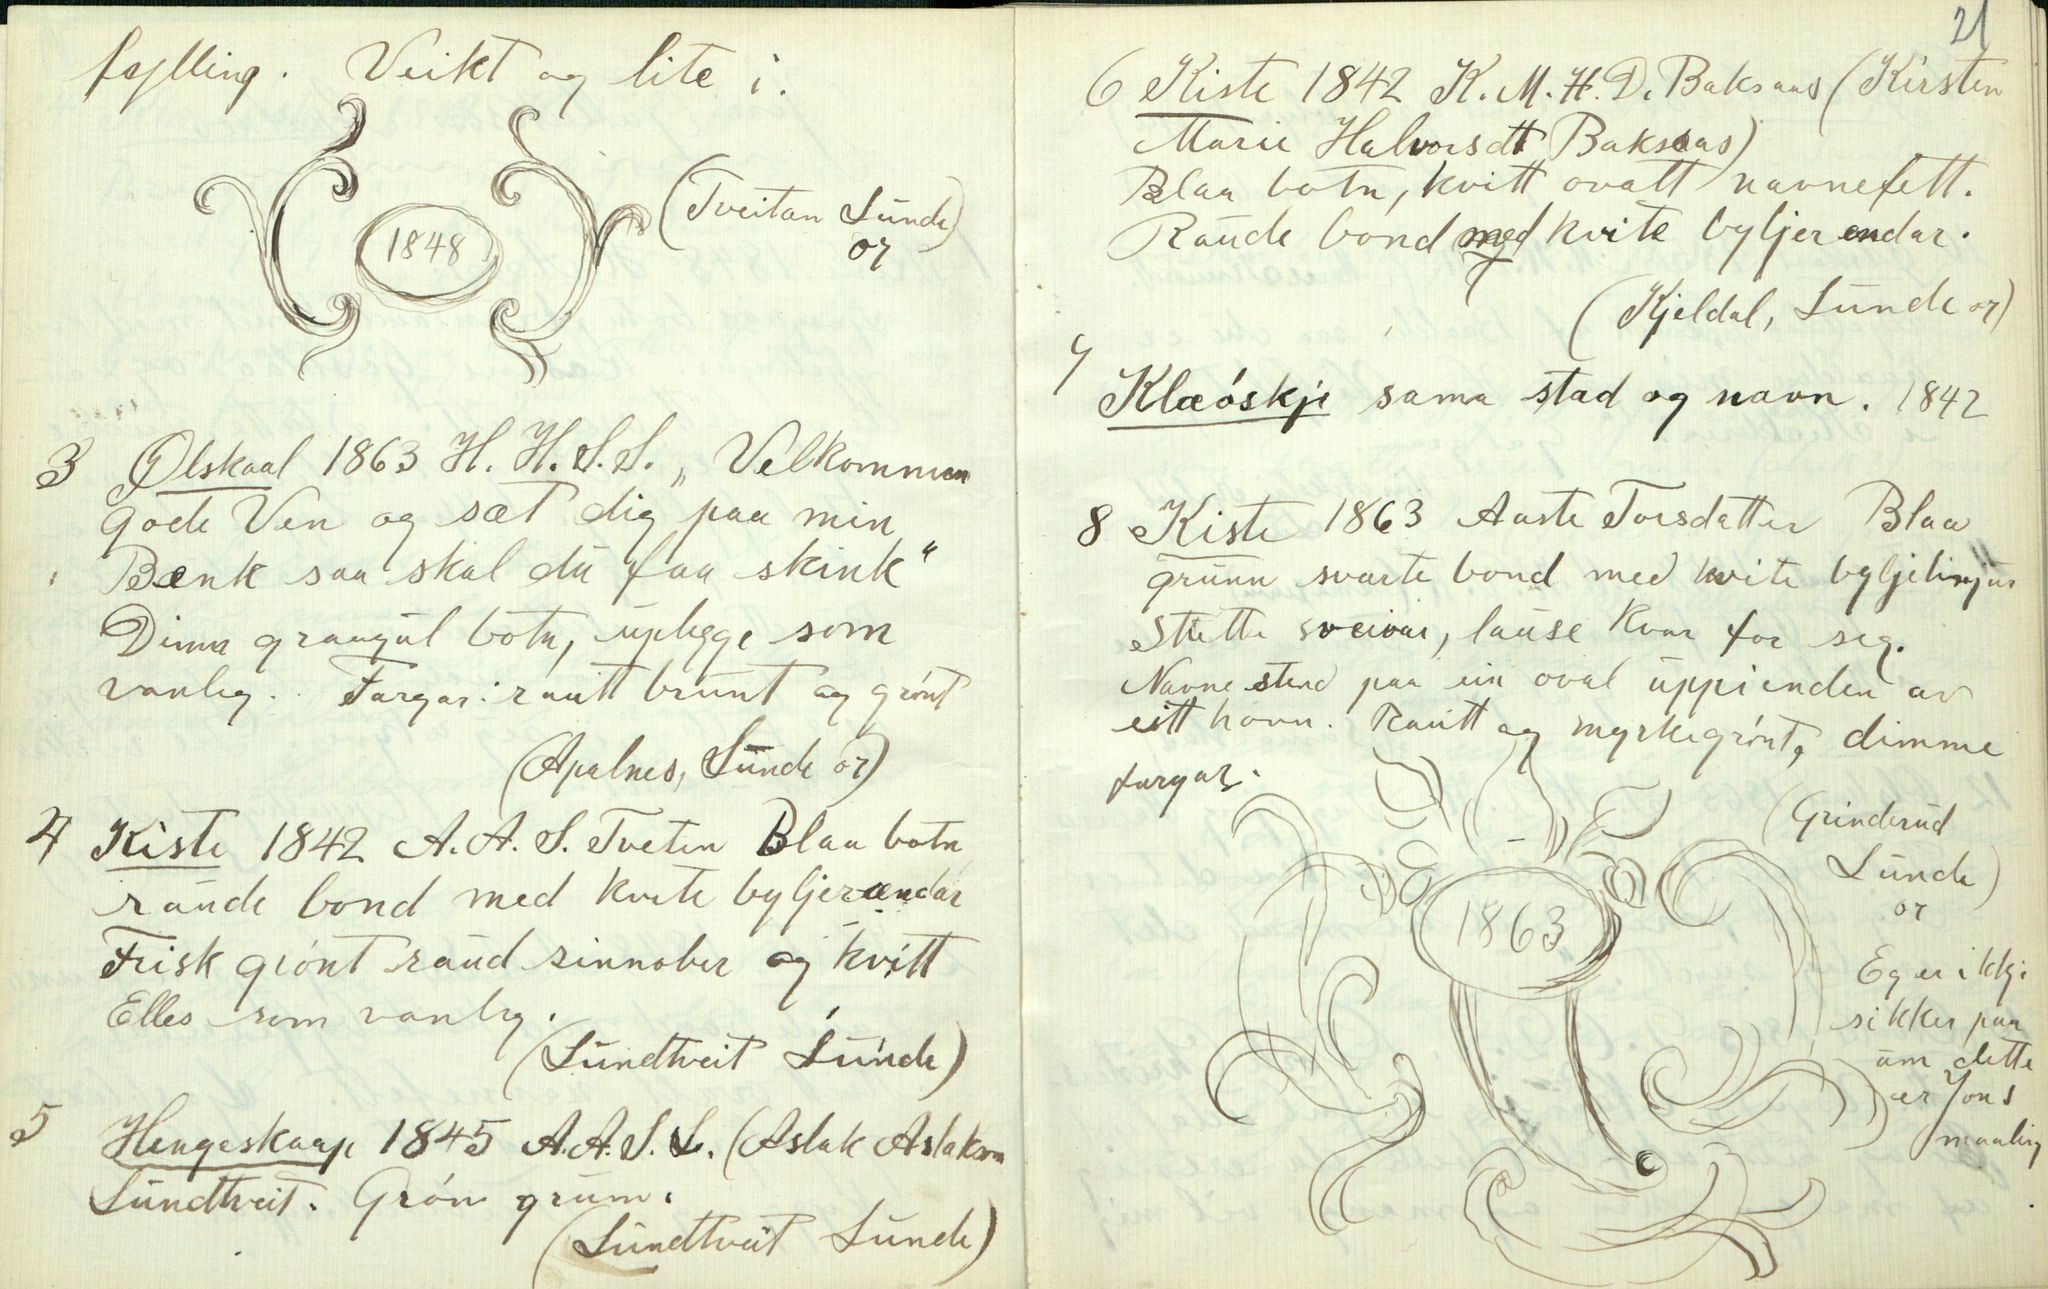 fylling. Veikt og lite i.
1848
(Tveitan Lunde
or)
3 Ølskaal 1863 H. H. S. S. „Velkommen
gode Ven og sæt dig paa min
Bænk saa skal du faa skink“
Dimm graagul botn, uplegge som
vanleg. Fargar: rautt brunt og grønt
(Apalnes, Lunde or)
4 Kiste 1842 A. A. S. Tveten Blaa botn
raude bond med kvite byljerændar
Frisk grønt raud sinnober og kvitt
Elles som vanleg.
(Lundtveit Lunde)
5 Hengeskaap 1845 A. A. S. L. (Aslak Aslakson
Lundtveit. Grøn grunn.
(Lundtveit Lunde)
21
6 Kiste 1842 K. M. H. D. Baksaas (Kirsten
Marie Halvorsdtt Baksaas)
Blaa botn, kvitt ovalt navnefelt.
Raude bond med kvite byljerendar.
(Kjeldal, Lunde or)
7
Klæóskje sama stad og navn. 1842
8 Kiste 1863 Aaste Torsdatter Blaa
grunn svarte bond med kvite byljelinjur
Stutte sveivar, lause kvar for seg.
Navne stend paa ein oval uppi enden av
eitt hovn. Rautt og myrkegrønt, dimme
fargar.
(Grinderud
Lunde)
or
1863
Eg er ikkje
sikker paa
um dette
er Jons
maaling